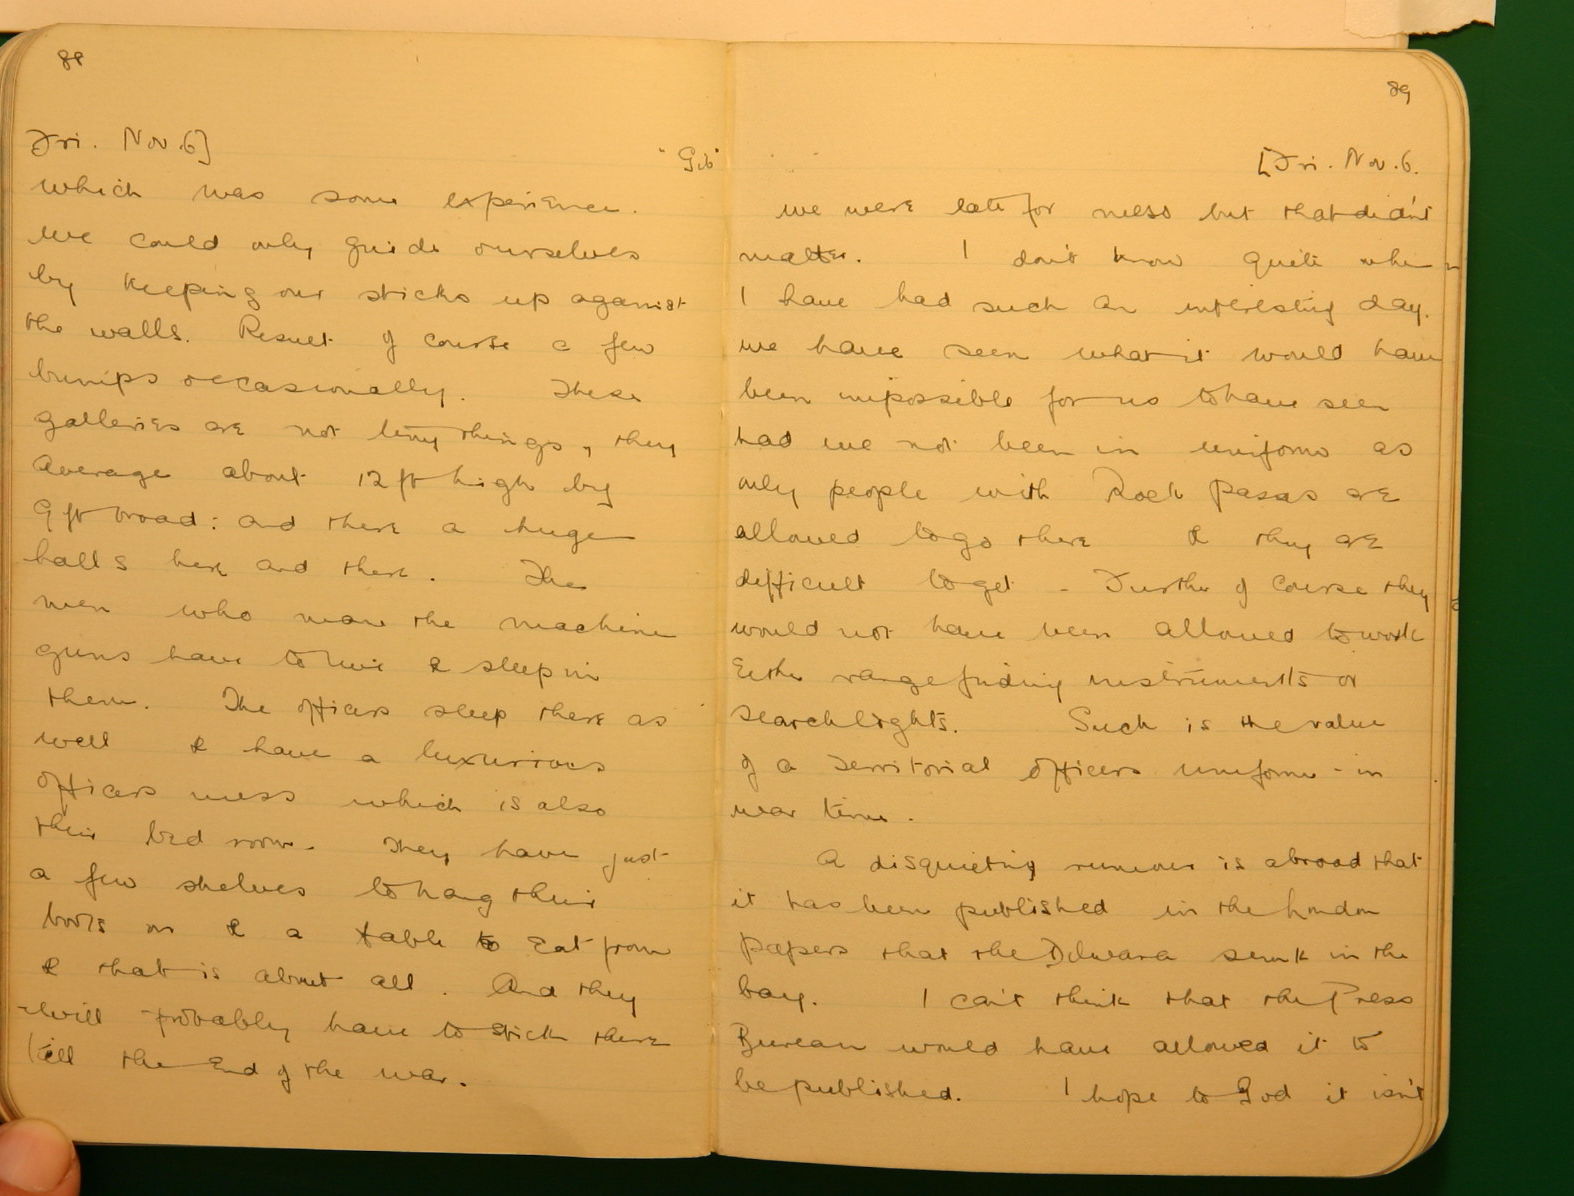 88
Fri. Nov 6]
"Gib"
which was some experience.
we could only guide ourselves
by keeping our sticks up against
the walls. Result of course a few
bumps occasionally. These
galleries are not tiny things, they
average about 12 ft high by
9 ft broad: and there a huge
halls here and there. The
men who man the machine
guns have to live & sleep in
them. The officers sleep there as
well & have a luxurious
officers mess which is also
their bed room. They have just
a few shelves to hang their
boots on & a table to eat from
& that is about all. And they
will probably have to stick there
till the end of the war.
89
[Fri. Nov. 6.
we were late for mess but that didn't
matter. I don't know quite when
I have had such an interesting day.
we have seen what it would have
been impossible for us to have seen
had we not been in uniform as
only people with Rock passes are
allowed to go there & they are
difficult to get - Further of course they
would not have been allowed to work
Either range finding instruments or
searchlights. Such is the value
of a Territorial officers uniform - in
war time.
A disquieting rumour is abroad that
it has been published in the London
papers that the Dilwara sunk in the
bay. I can't think that the Press
Bureau would have allowed it to
be published. I hope to God it isn't